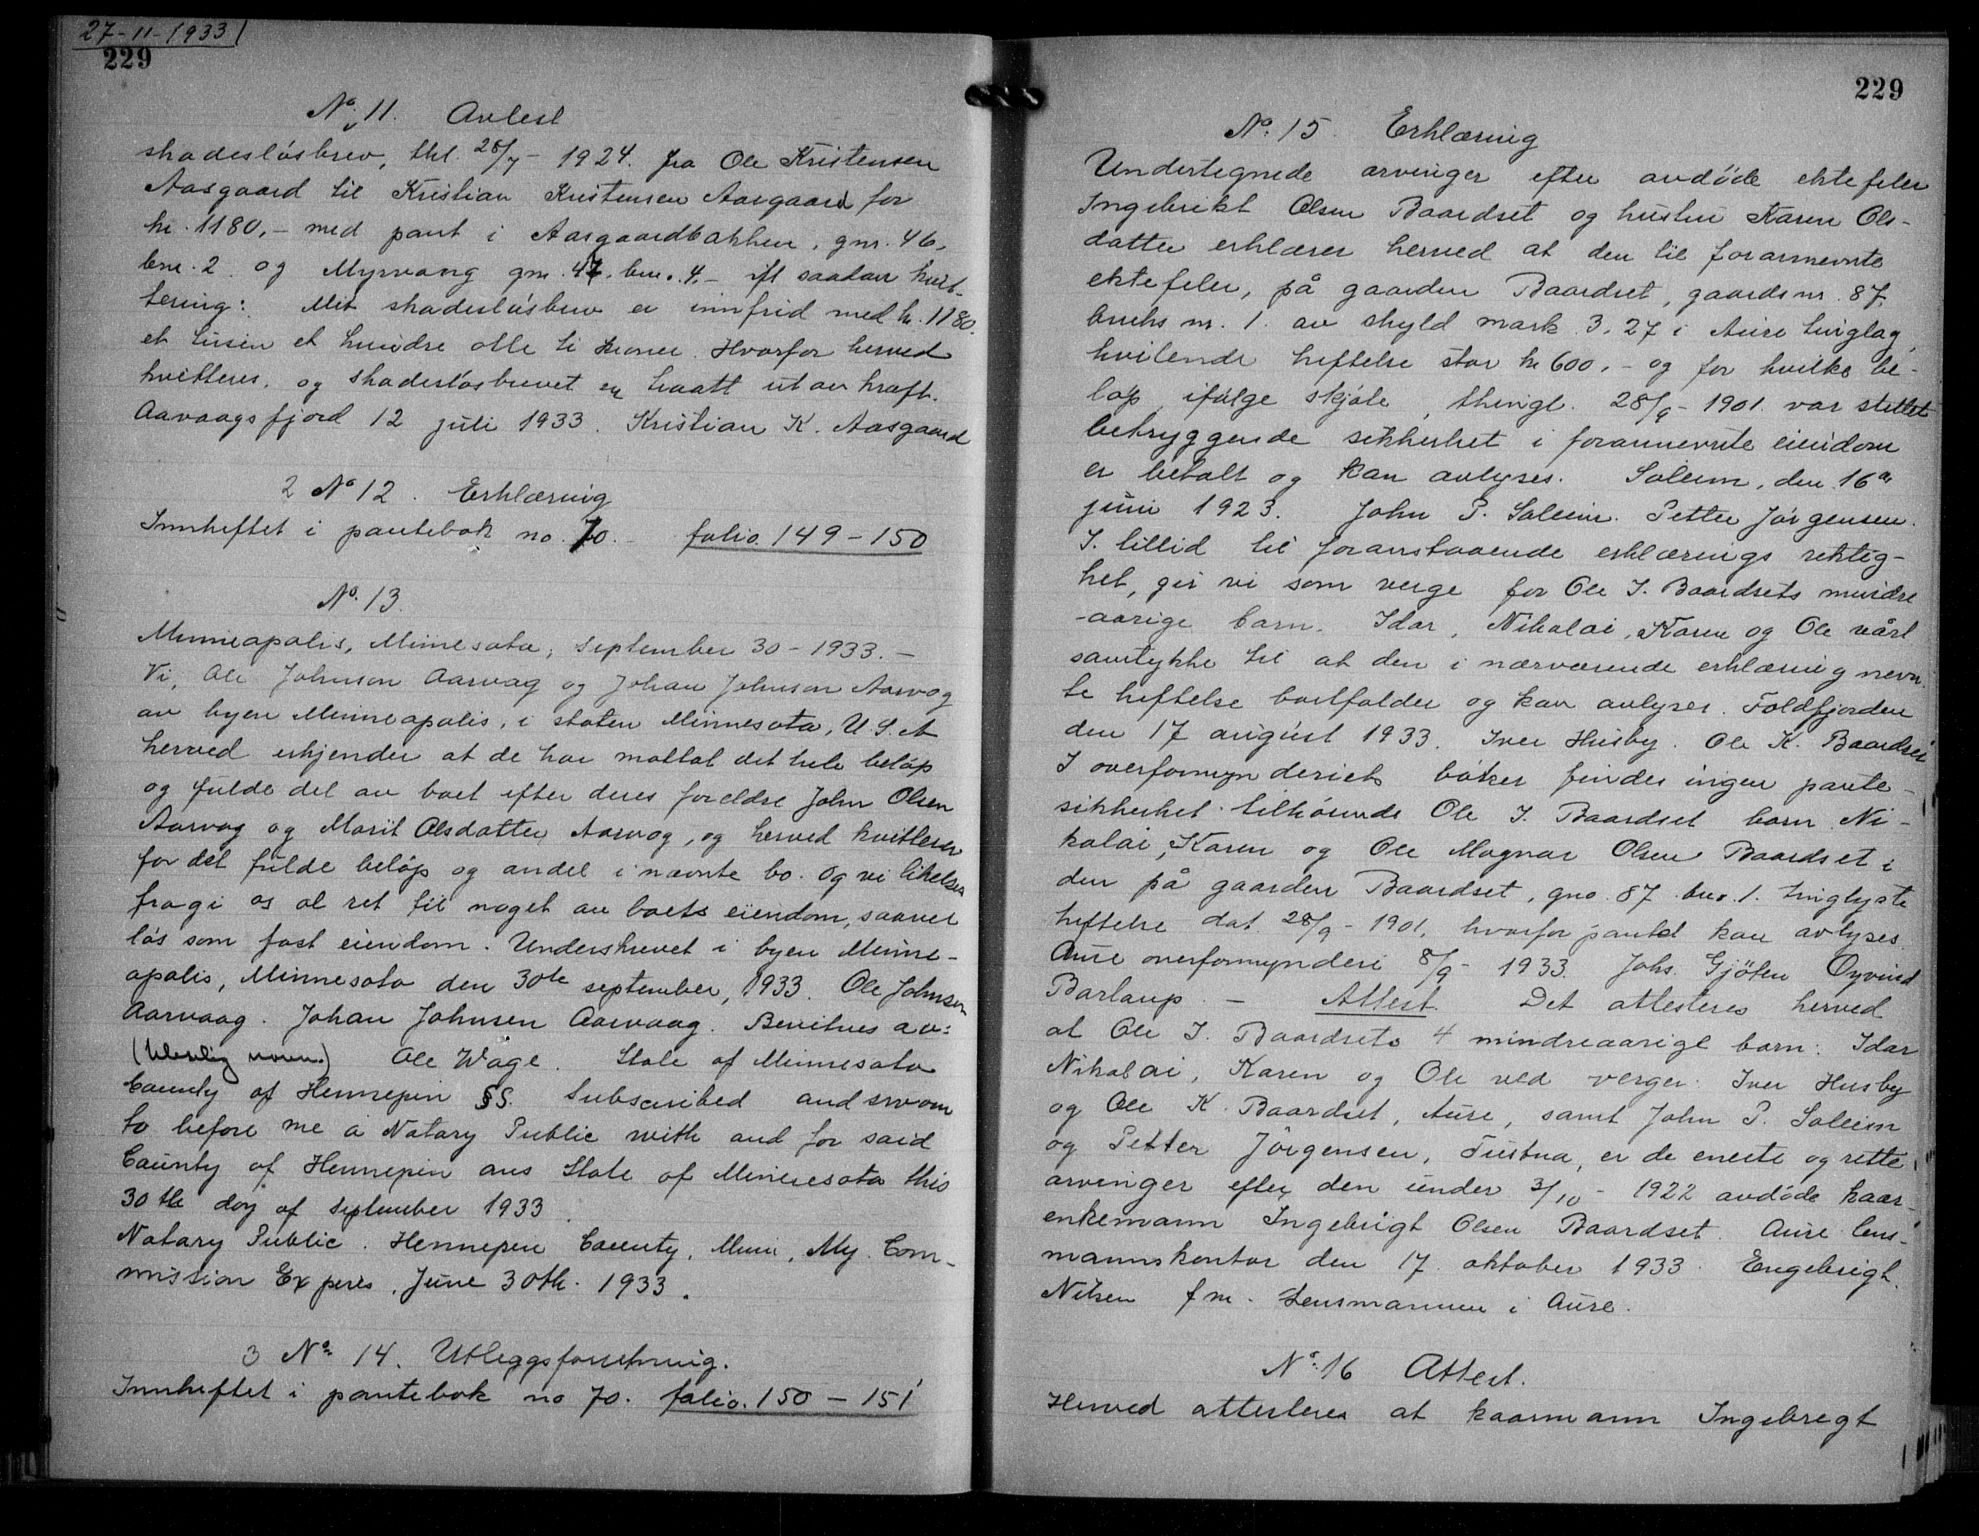 27-11-1933
229
No. 11. Avlest
skadesløsbrev, thl. 28/7 - 1924. fra Ole Kristensen
Aasgaard til Kristian Kristensen Aasgaard for
kr. 1180,- med pant i Aasgaardbakken, gnr. 46,
bnr. 2 og Myrvang gnr. 47. bnr. 4,- ifl saadan kvit-
tering: Mit skadesløsbrev er innfrid med kr. 1180.
et tusin et hundre otte ti kroner. Hvorfor herved
kvitteres, og skadesløsbrevet er traatt ut av kraft.
Aarvaagsfjord 12 juli 1933. Kristian K. Aasgaard
2 No 12. Erklæring
Innheftet i pantebok no. 70. folio. 149-150
No. 13.
Minneapolis, Minnesota, september 30 - 1933. -
Vi, Ole Johnson Aarvag og Johan Johnson Aarvog
av byen Minneapolis, i staten Minnesota, U.S.A
herved erkjender at de har mottat det hele beløp
og fulde del av boet efter deres foreldre John Olsen
Aarvog og Marit Olsdatter Aarvog, og herved kvitterer
for det fulde beløp og andel i nævnte bo. og vi likeledes
fragi os al ret til noget av boets eiendom, saavel
løs som fast eiendom. Underskrevet i byen Minne-
apolis, Minnesota den 30te september, 1933. Ole Johnson
Aarvaag. Johan Johnsen Aarvaag. Bevitnes av:
(Uleselig navn.) Ole Wage. State of Minnesota
County of Hennepin §S. Subscribed and sworn
to before me a Notary Public with and for said
County of Hennepin ans State of Minnesota this
30th day of September 1933.
Notary Public. Hennepin County, Minn, My. Com-
mission Experes, June 30th. 1933.
3 No 14. Utleggsforretning.
Innheftet i pantebok no 70. folio. 150 - 151
229
No. 15. Erklæring
Undertegnede arvinger efter avdøde ektefeler
Ingebrikt Olsen Baardset og hustru Karen Ols-
datter erklærer herved at den til forannevnte
ektefeler, på gaarden Baardset, gaardsnr. 87,
bruks nr. 1. av skyld mark 3,27 i Aure tinglag,
hvilende heftelse stor kr 600,- og for hvilke be-
løp ifølge skjøte, thingl. 28/9 - 1901. var stillet
betryggende sikkerhet i forannevnte eiendom
er betalt og kan avlyses. Soleim, den 16de
juni 1923. John P. Soleim. Petter Jørgensen.
I tillid til foranstaaende erklærings riktig-
het, gir vi som verge for Ole I. Baardsets mindre
-aarige barn. Idar, Nikolai, Karen og Ole vårt
samtykke til at den i nærværende erklæring nevn-
te heftelse bortfalder og kan avlyses. Foldfjorden
den 17 august 1933. Iver Husby. Ole K. Baardset
I overformynderiets bøker findes ingen pante-
sikkerhet tilhørende Ole I. Baardset barn Ni-
kolai, Karen og Ole Magnar Olsen Baardset i
den på gaarden Baardset, gno. 87 bno. 1. tinglyste
heftelse dat. 28/9 - 1901, hvorfor pantet kan avlyses.
Aure overformynderi 8/9 - 1933. Johs. Gjøten Øyvind
Barlaup. - Attest. Det attesteres herved
at Ole I. Baardsets 4 mindreaarige barn: Idar
Nikolai, Karen og Ole ved verger: Iver Husby
og Ole K. Baardset, Aure, samt John P. Soleim
og Petter Jørgensen, Tustna, er de eneste og rette
arvinger efter den under 3/10 - 1922 avdøde kaar-
enkemann Ingebrigt Olsen Baardset. Aure lens-
mannskontor den 17. oktober 1933. Engebrigt
Nilsen fm. Lensmannen i Aure.
No. 16 Attest.
Herved attesteres at kaarmann Ingebregt